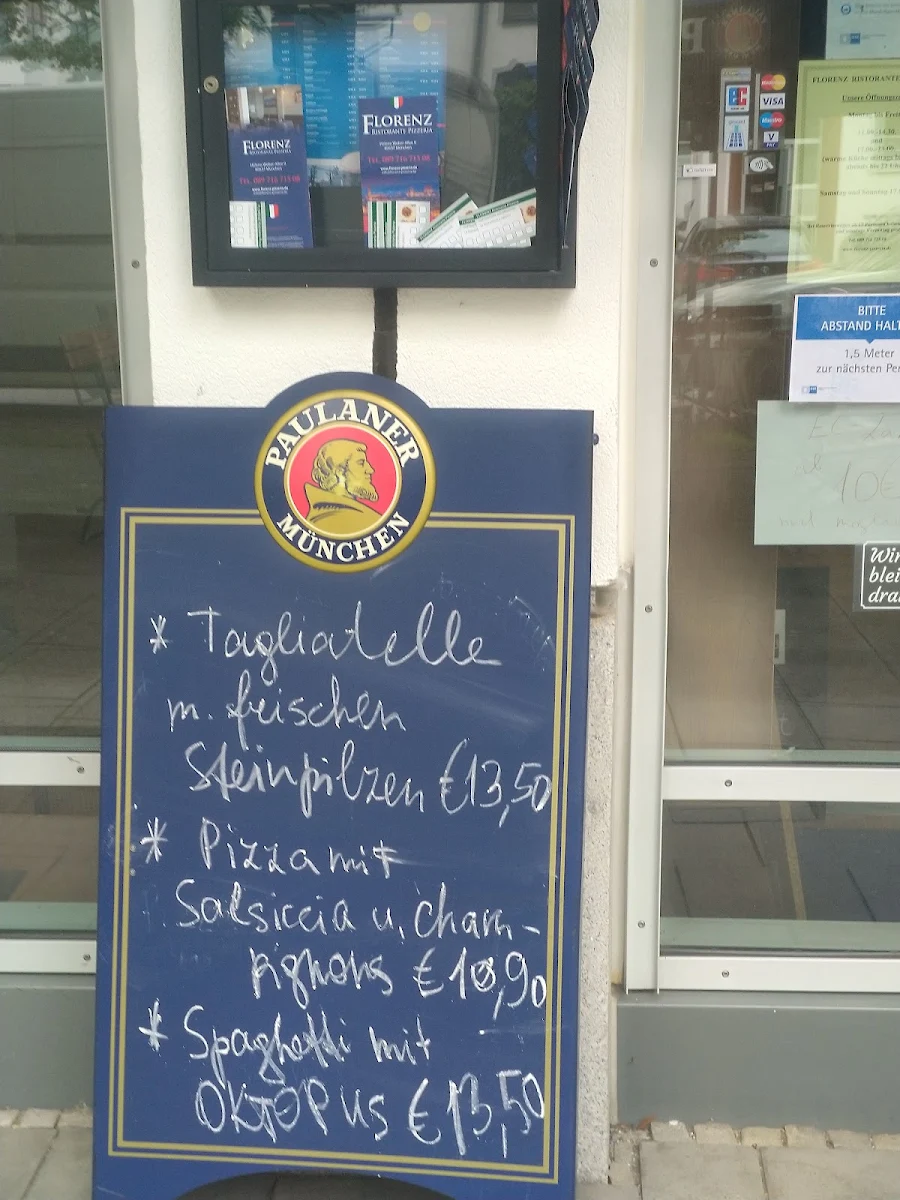 FLORENZ
RISTORANTE PIZZERIA
TEL. 089 716 713 08
FLORENZ
RISTORANTE PIZZERIA
TEL. 089 716 713 08
VISA
FLORENZ RISTORANTE
Unsere Öffnungsze
BITTE
ABSTAND HALT
1,5 Meter
zur nächsten Per
10€
Wir
blei
dra
PAULANER
MÜNCHEN
* Tagliatelle
m. frischen
Steinpilzen €13,50
* Pizza mit
Salsiccia u. Cham-
pignons € 10,90
* Spaghetti mit
OKTOPUS € 13,50